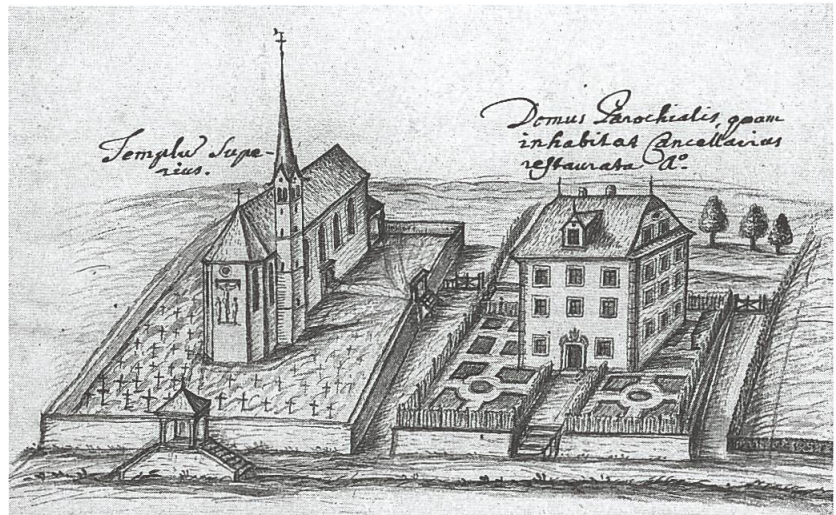 Templũ Supe-
rius.
Domus Parochialis, quam
inhabitat Cancellarius
restaurata Aº.